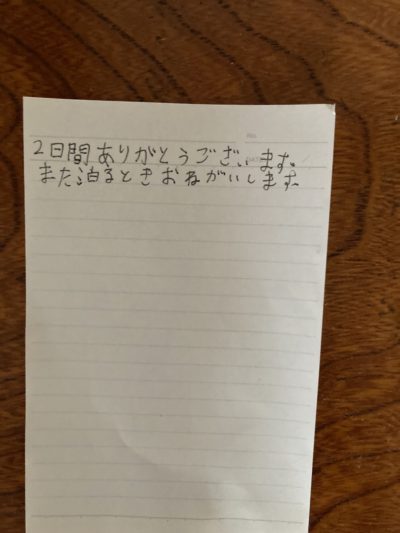 2日間ありがとうございます。
また泊るときおねがいします。